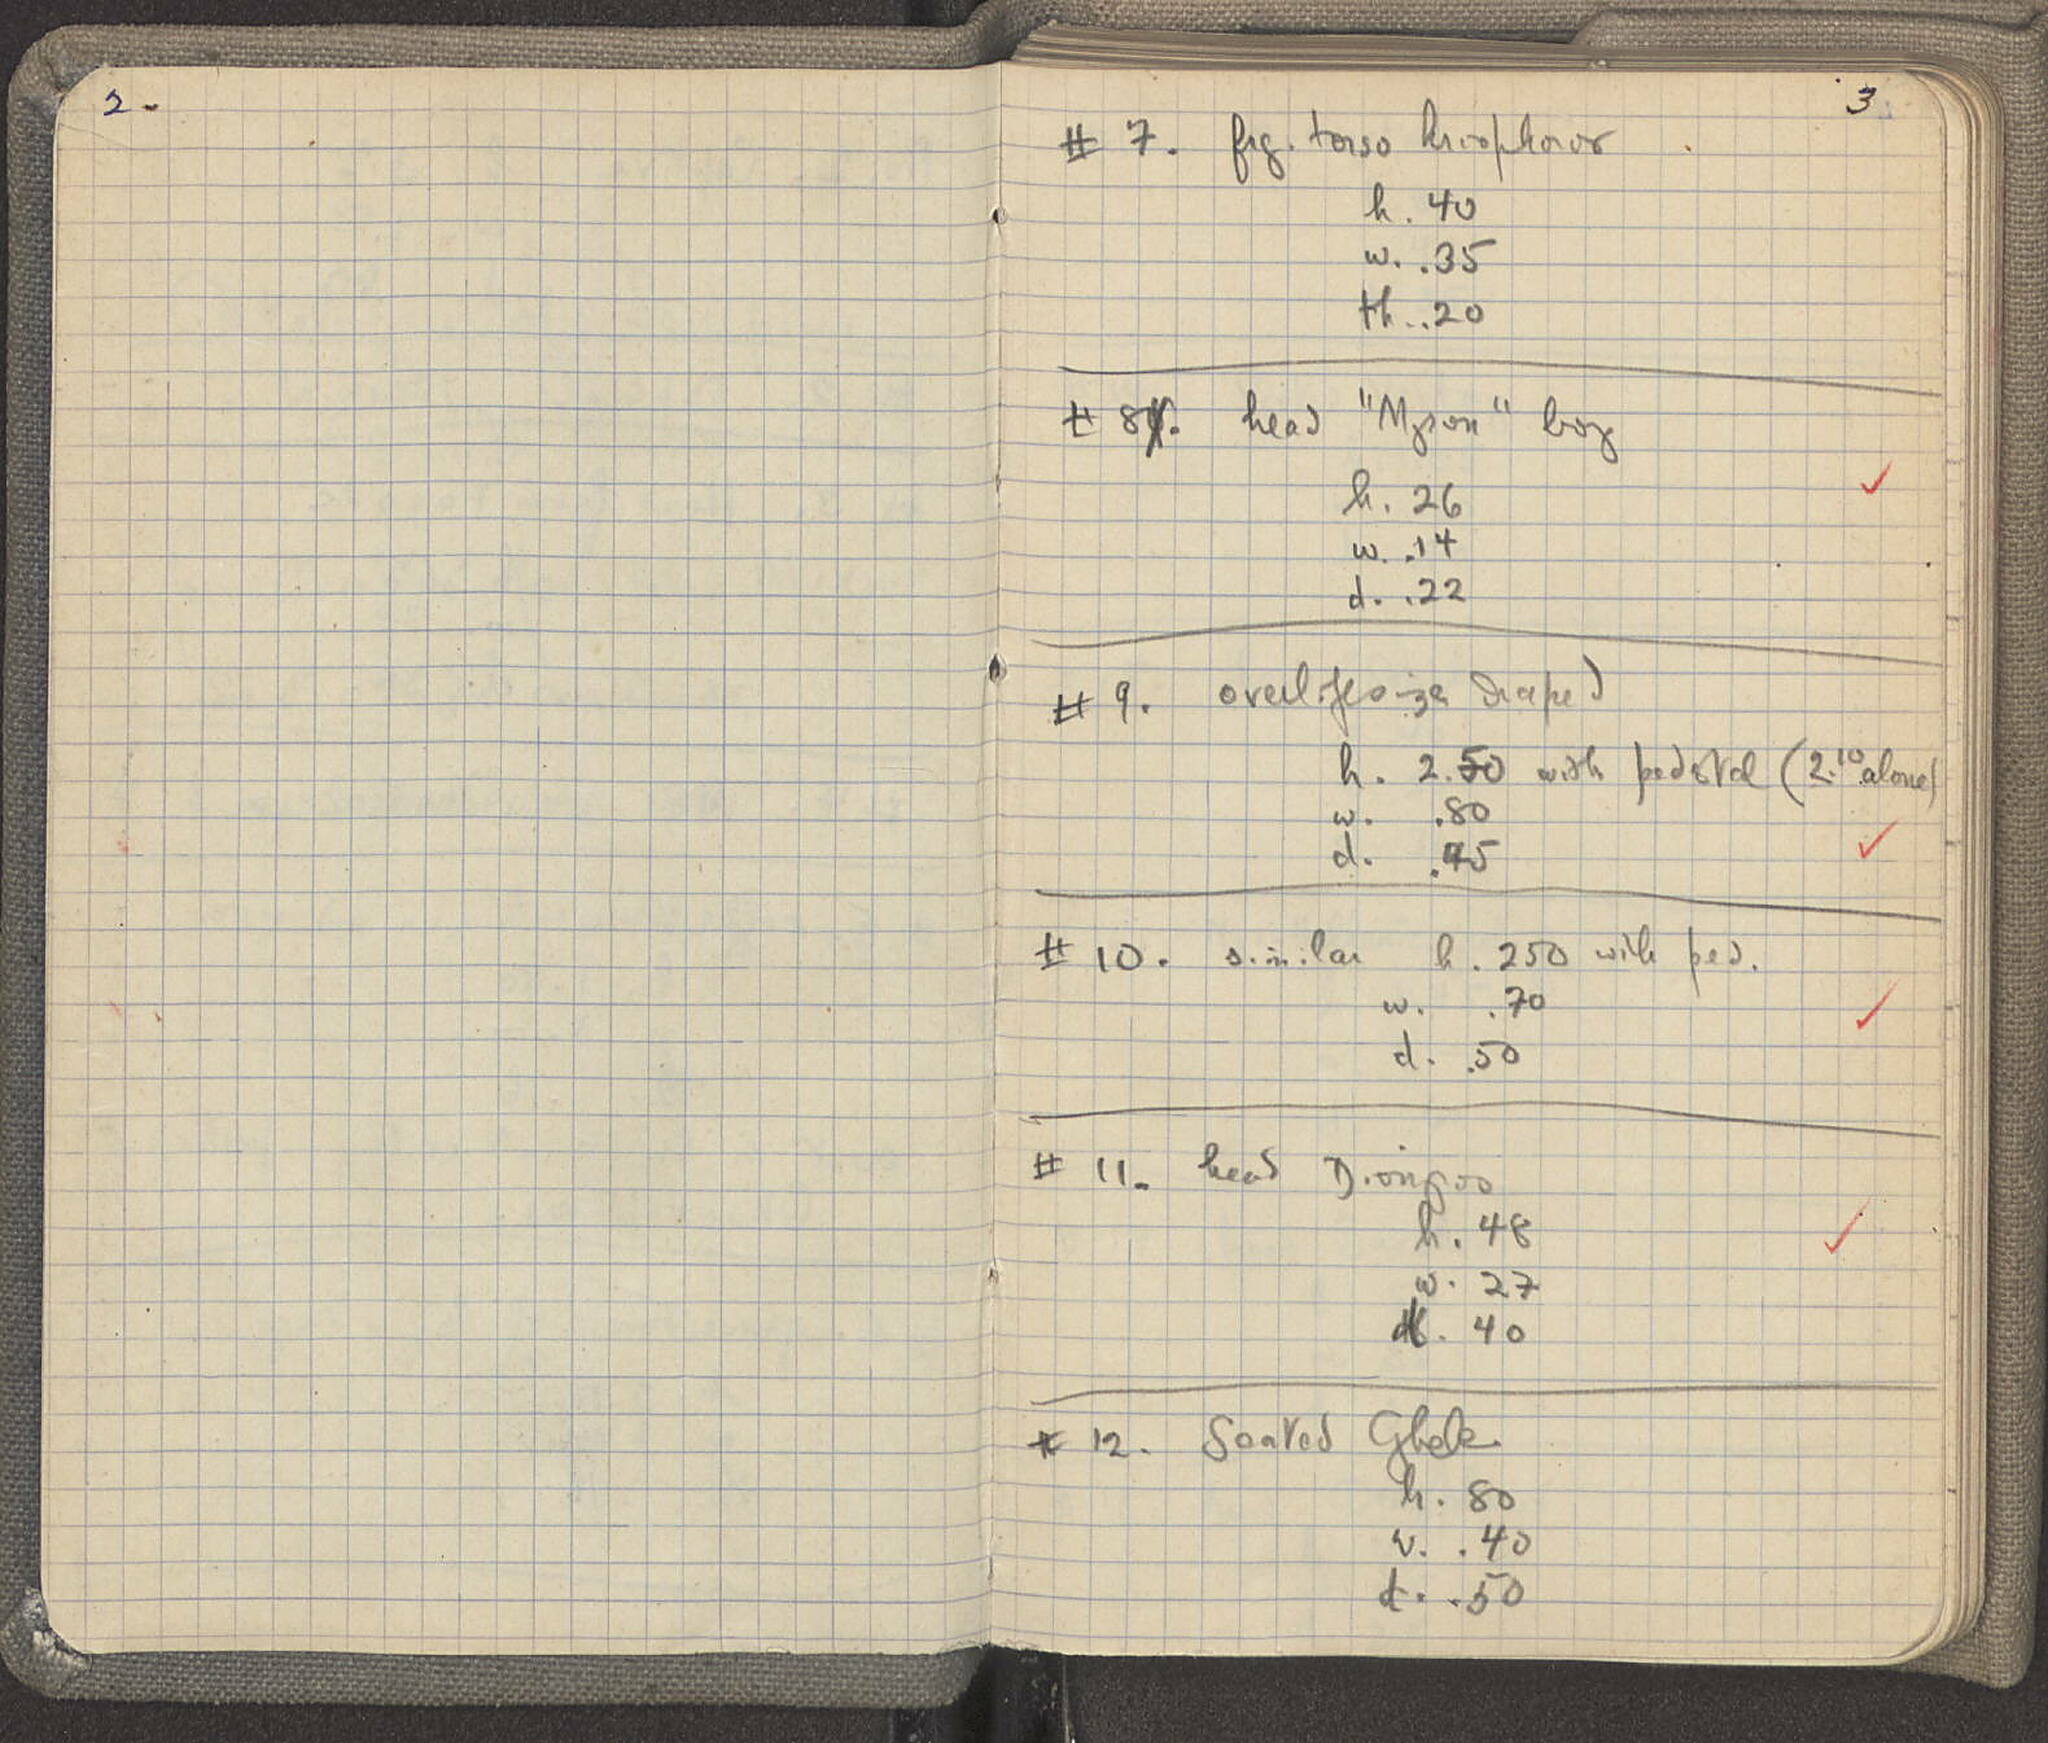 2 -
3
# 7. frg. torso kriophoros
h. 40
w. .35
th. .20
# 8. head "Myron" boy
h. 26
w. .14
d. .22
# 9. overlifesize draped
h. 2.50 with pedestal (2.10 alone)
w. .80
d. .45
# 10. similar h. 250 with ped.
w. .70
d. .50
# 11. head Dionysos
h. 48
w. 27
d. 40
# 12. Seated Cybele
h. 80
w. .40
d. .50